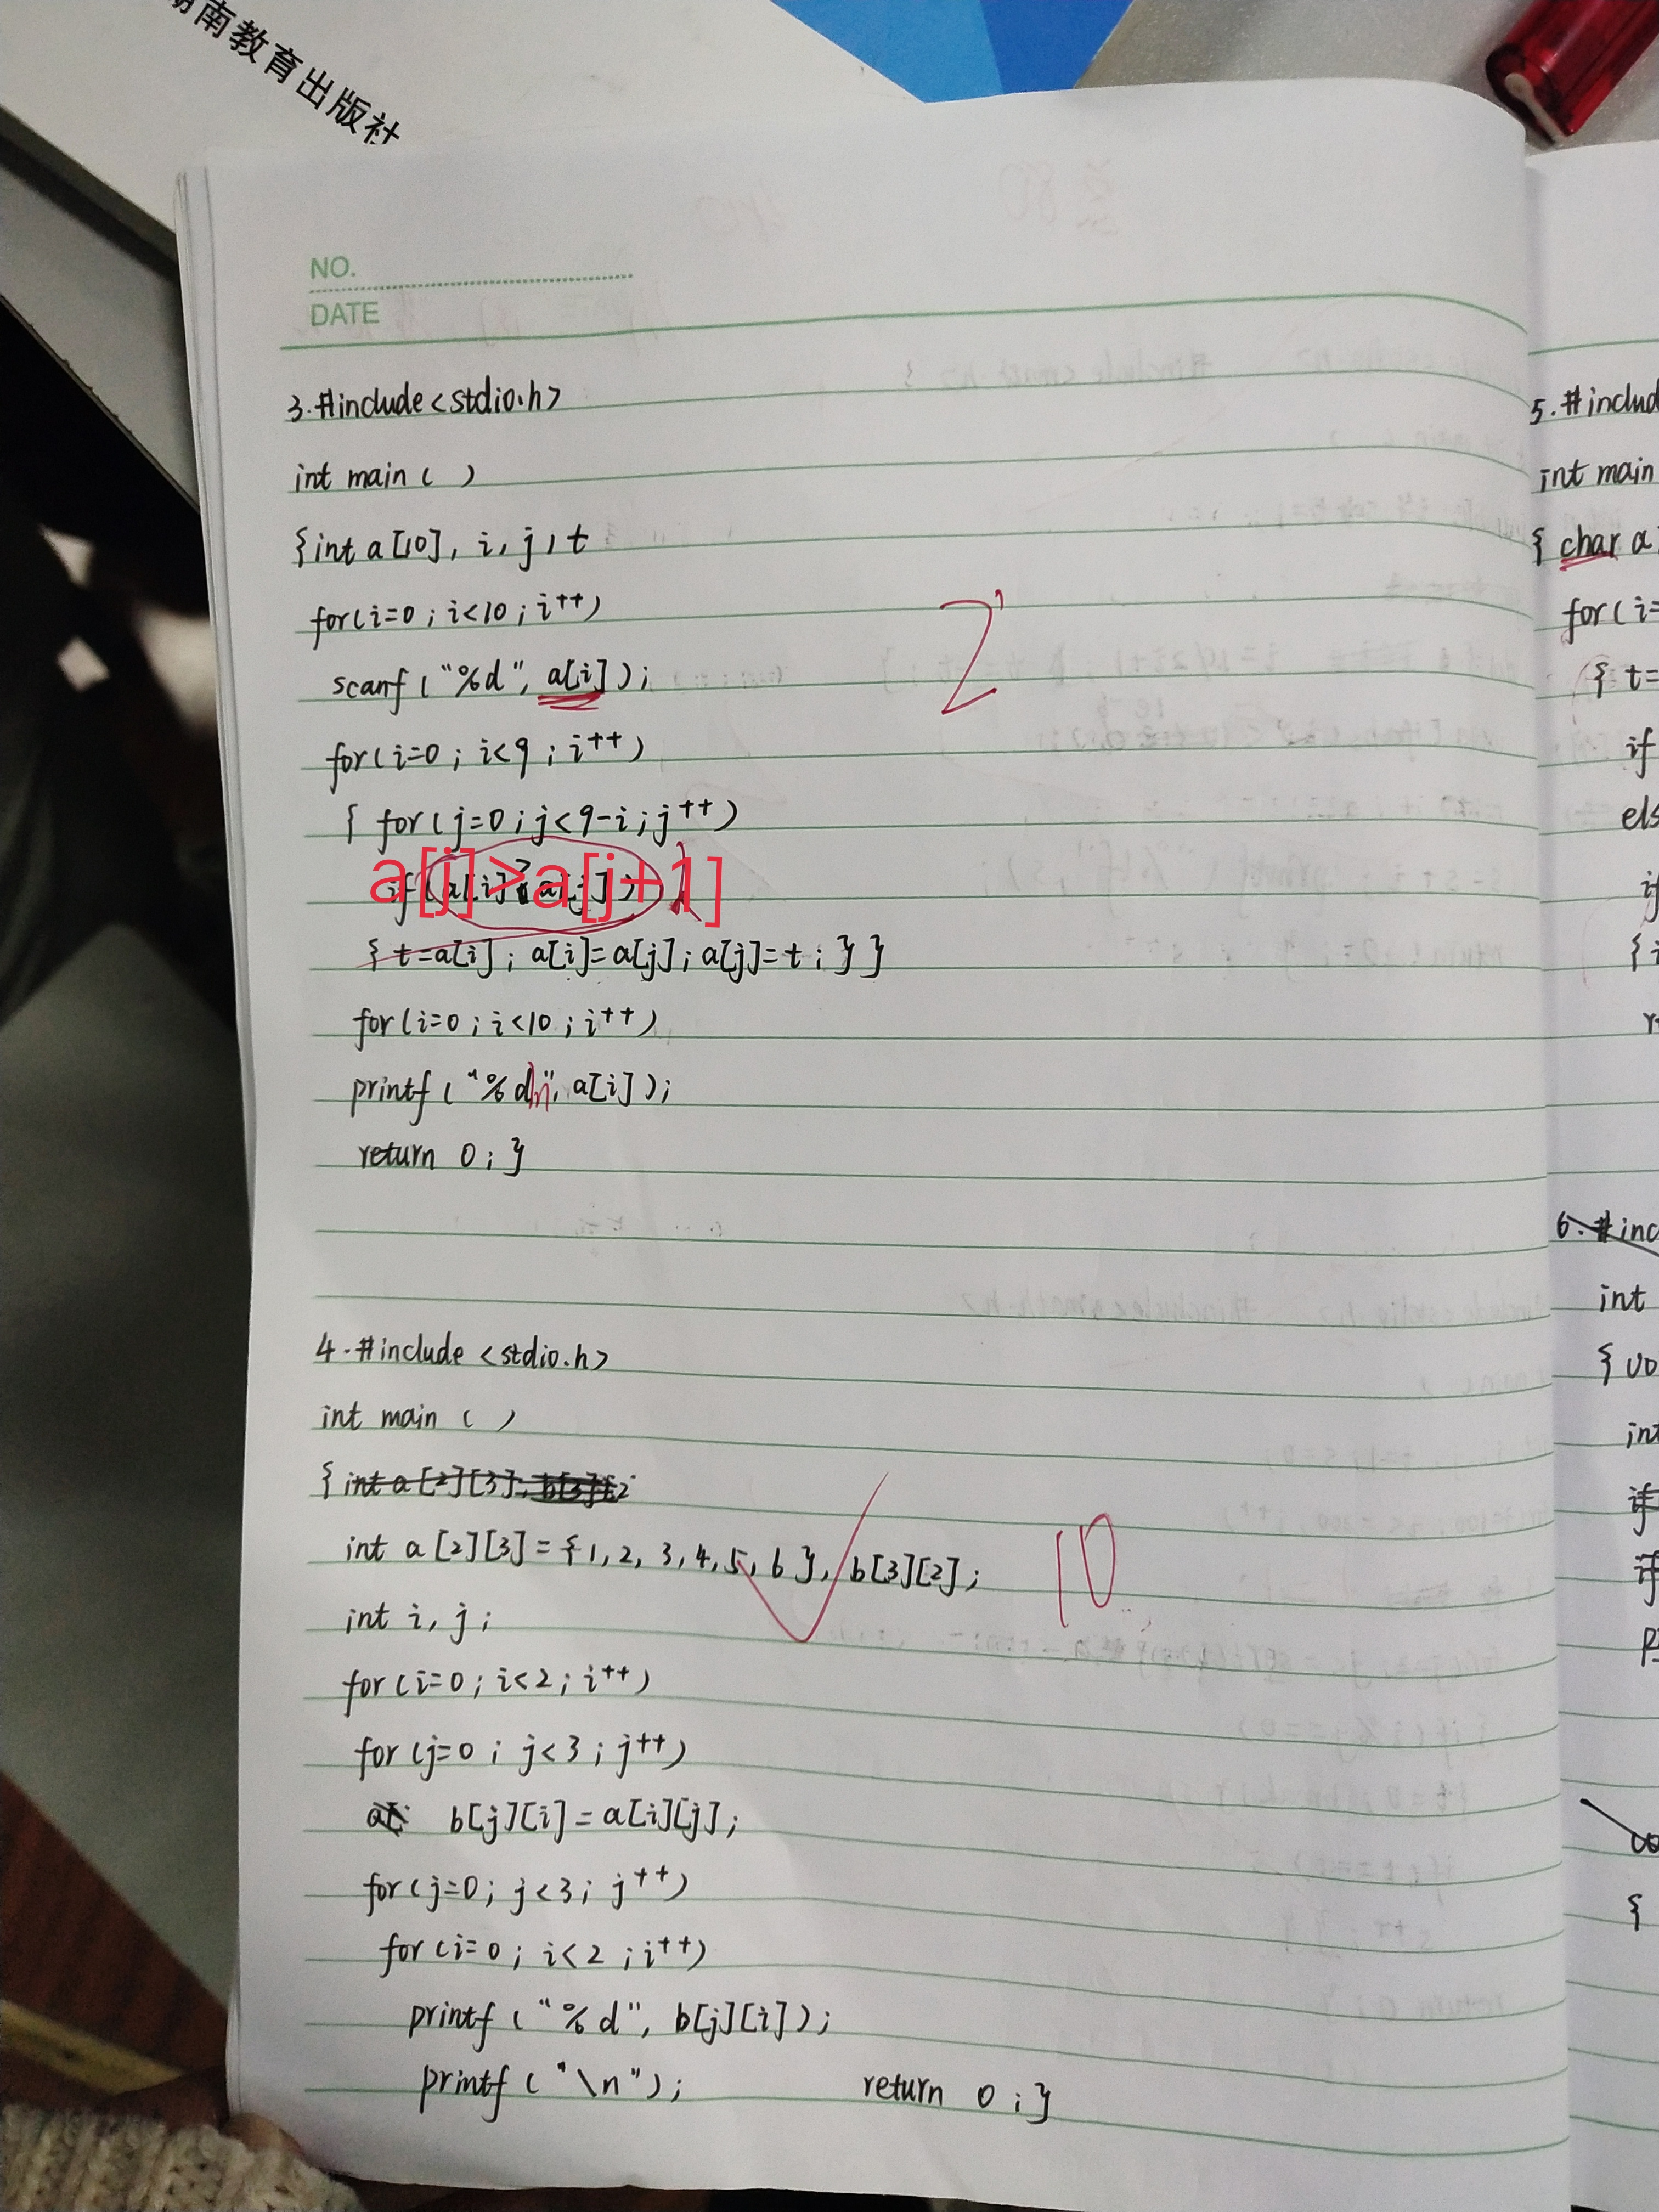 南教育出版社
NO.
DATE
3.#include<stdio.h>
int main ( )
{int a[10], i, j, t
for(i=0; i<10; i++)
scanf ("%d", a[i]);
for(i=0; i<9; i++)
{ for(j=0; j<9-i; j++)
if (a[i]>a[j])
a[j]>a[j+1]
{ t=a[i]; a[i]=a[j]; a[j]=t; } }
for(i=0; i<10; i++)
printf ("%d\n", a[i]);
return 0; }
2
4.#include <stdio.h>
int main ( )
{ int a[2][3];
int a [2][3]={1,2,3,4,5,6}, b[3][2];
10
int i, j;
for(i=0; i<2; i++)
for(j=0; j<3; j++)
b[j][i]=a[i][j];
for(j=0; j<3; j++)
for(i=0; i<2; i++)
printf ("%d", b[j][i]);
printf ("\n"); return 0; }
5.#includ
int main
{ char a
for(i=
{ t=
if
els
if
{ i
6.#inc
int
{ vo
int
if
if
{